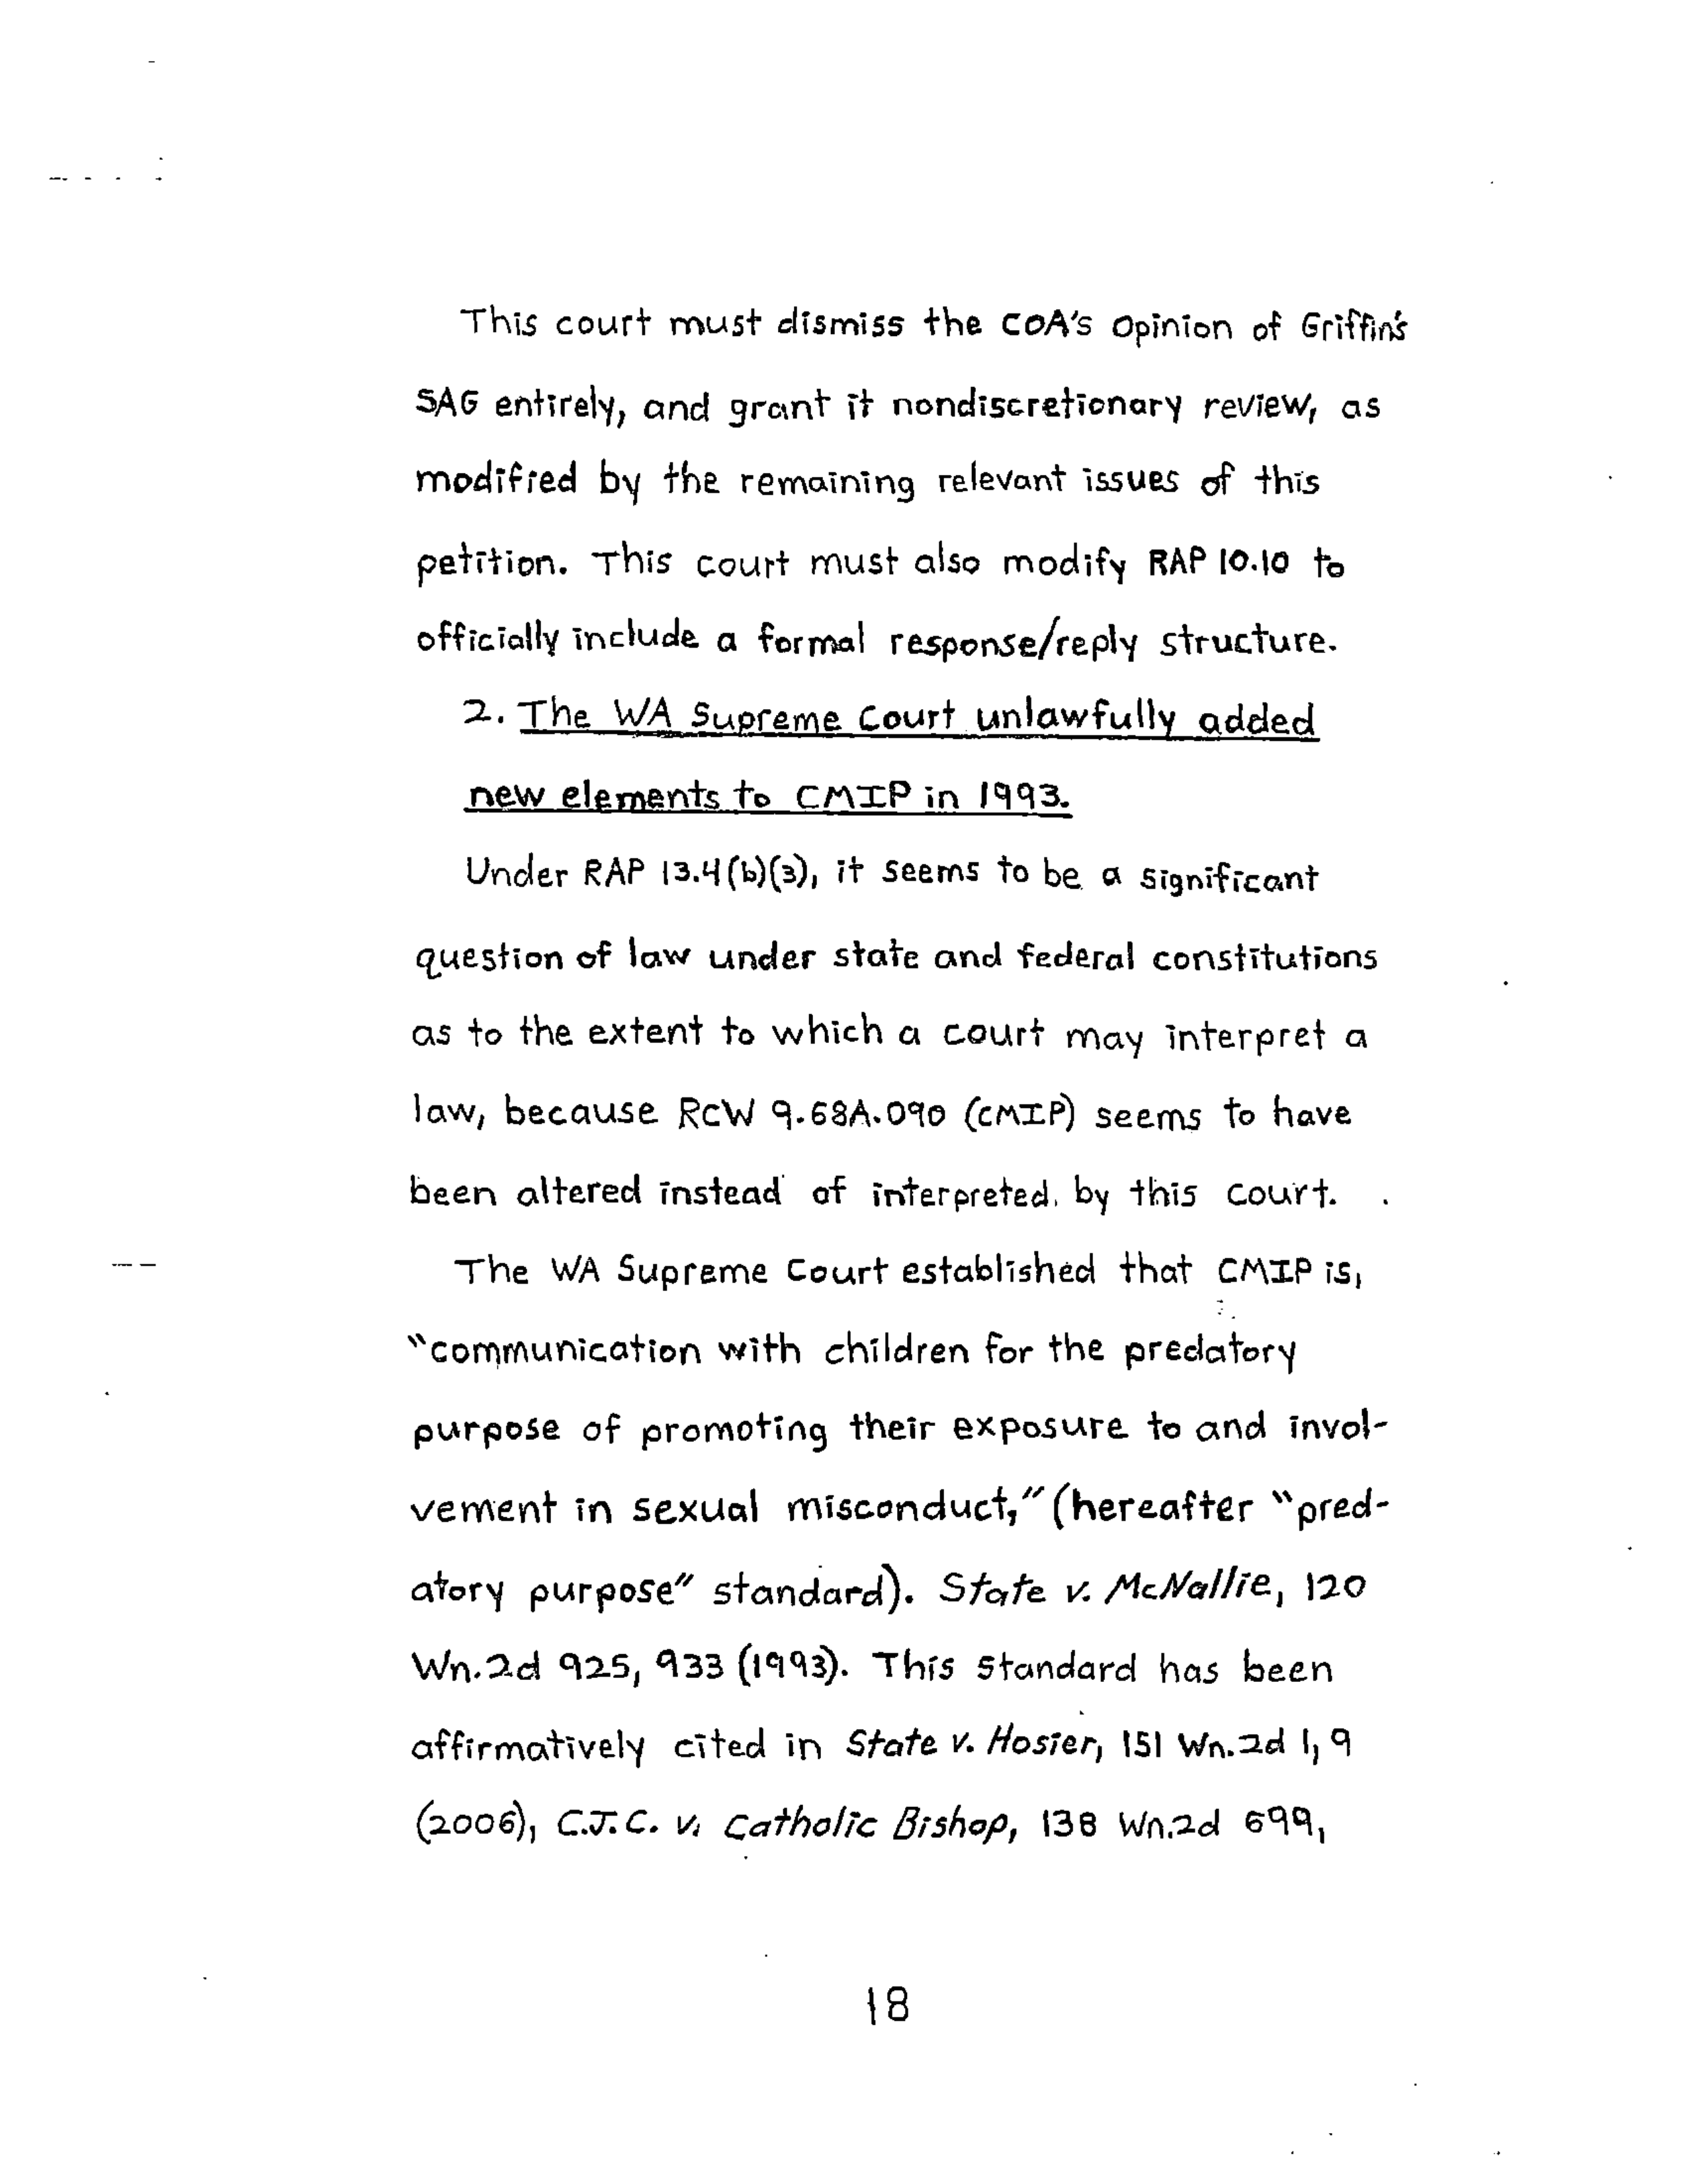 This court must dismiss the COA's Opinion of Griffin's
SAG entirely, and grant it nondiscretionary review, as
modified by the remaining relevant issues of this
petition. This court must also modify RAP 10.10 to
officially include a formal response/reply structure.
2. The WA Supreme Court unlawfully added
new elements to CMIP in 1993.
Under RAP 13.4(b)(3), it seems to be a significant
question of law under state and federal constitutions
as to the extent to which a court may interpret a
law, because RCW 9.68A.090 (CMIP) seems to have
been altered instead of interpreted by this court.
The WA Supreme Court established that CMIP is,
"communication with children for the predatory
purpose of promoting their exposure to and invol-
vement in sexual misconduct," (hereafter "pred-
atory purpose" standard). State v. McNallie, 120
Wn.2d 925, 933 (1993). This standard has been
affirmatively cited in State v. Hosier, 151 Wn.2d 1, 9
(2006), C.J.C. v. Catholic Bishop, 138 Wn.2d 699,
18